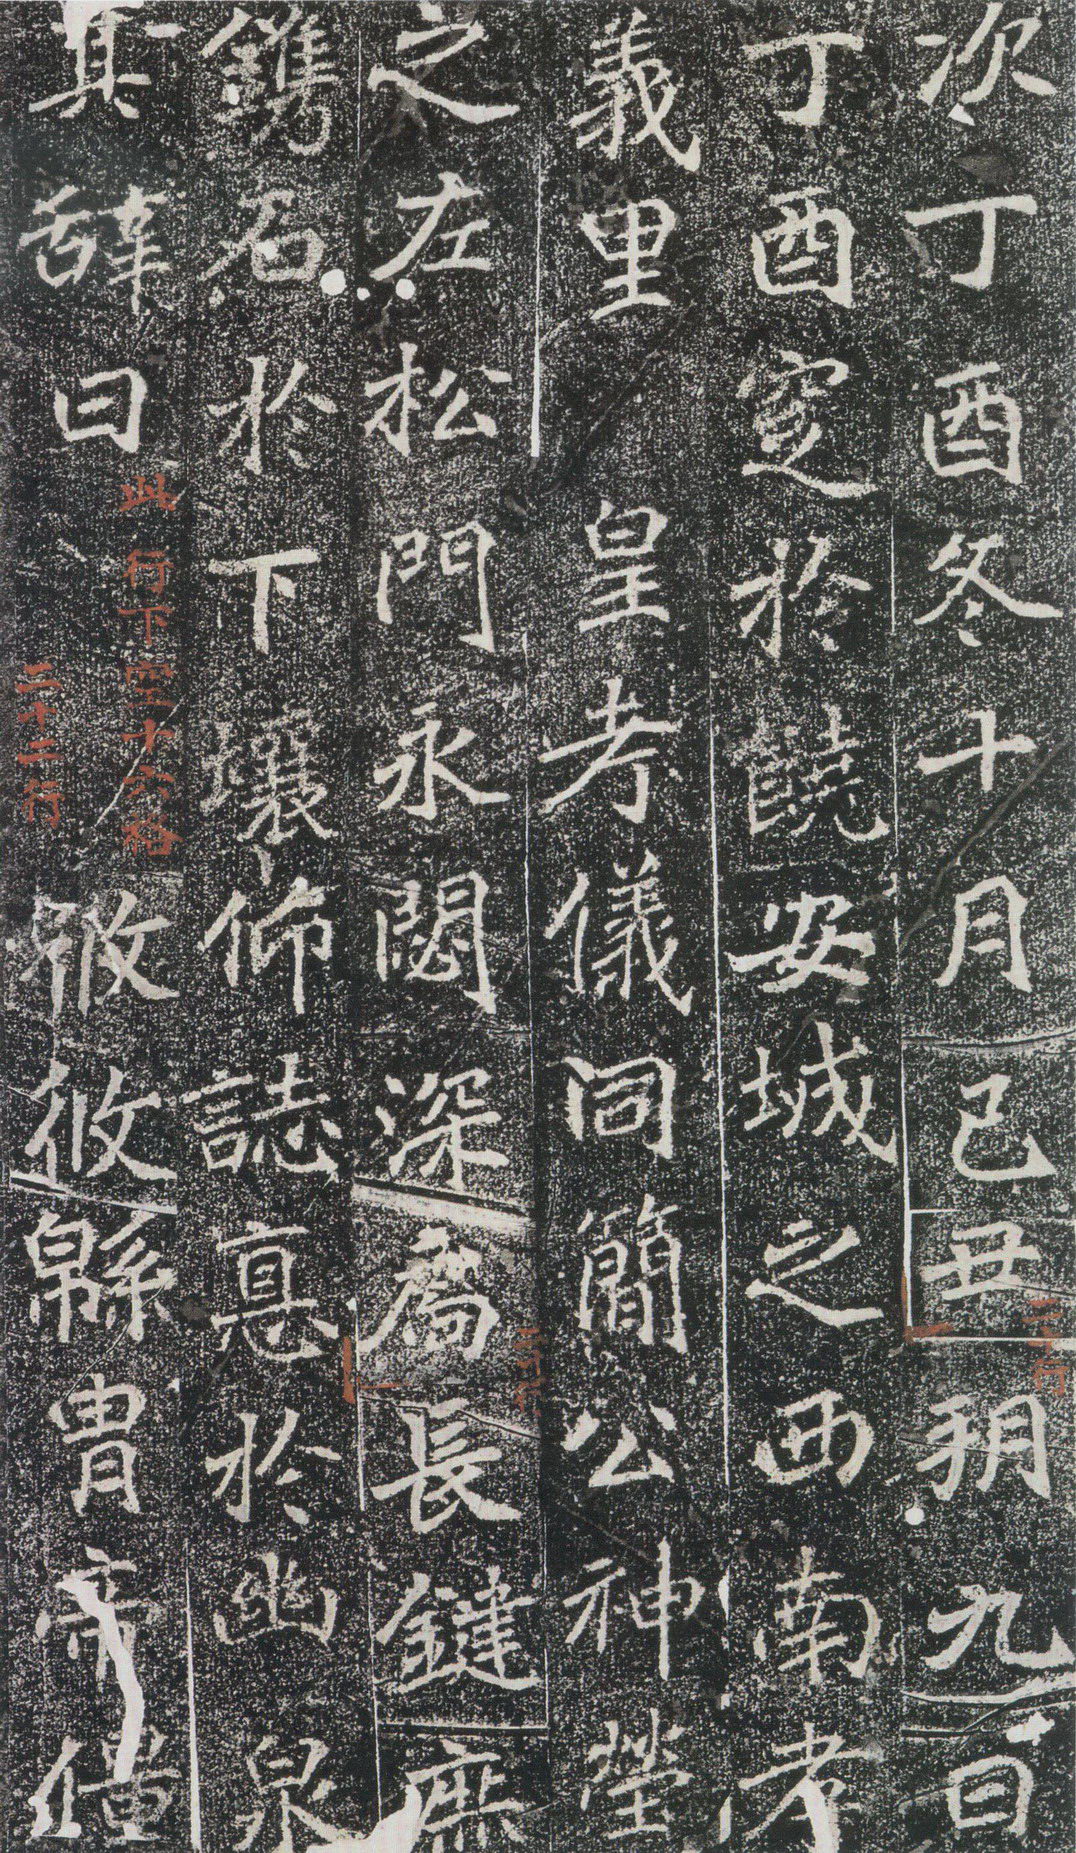 次丁酉冬十月己丑朔九日
丁酉窆於饒安城之西南孝
義里皇考儀同簡公神塋
之左松門永閟深扃長鍵庶
鐫石於下壤仰誌惪於幽泉
其辭曰攸攸緜胄帝僊
二十行
二十一行
此行下空十六格
二十二行